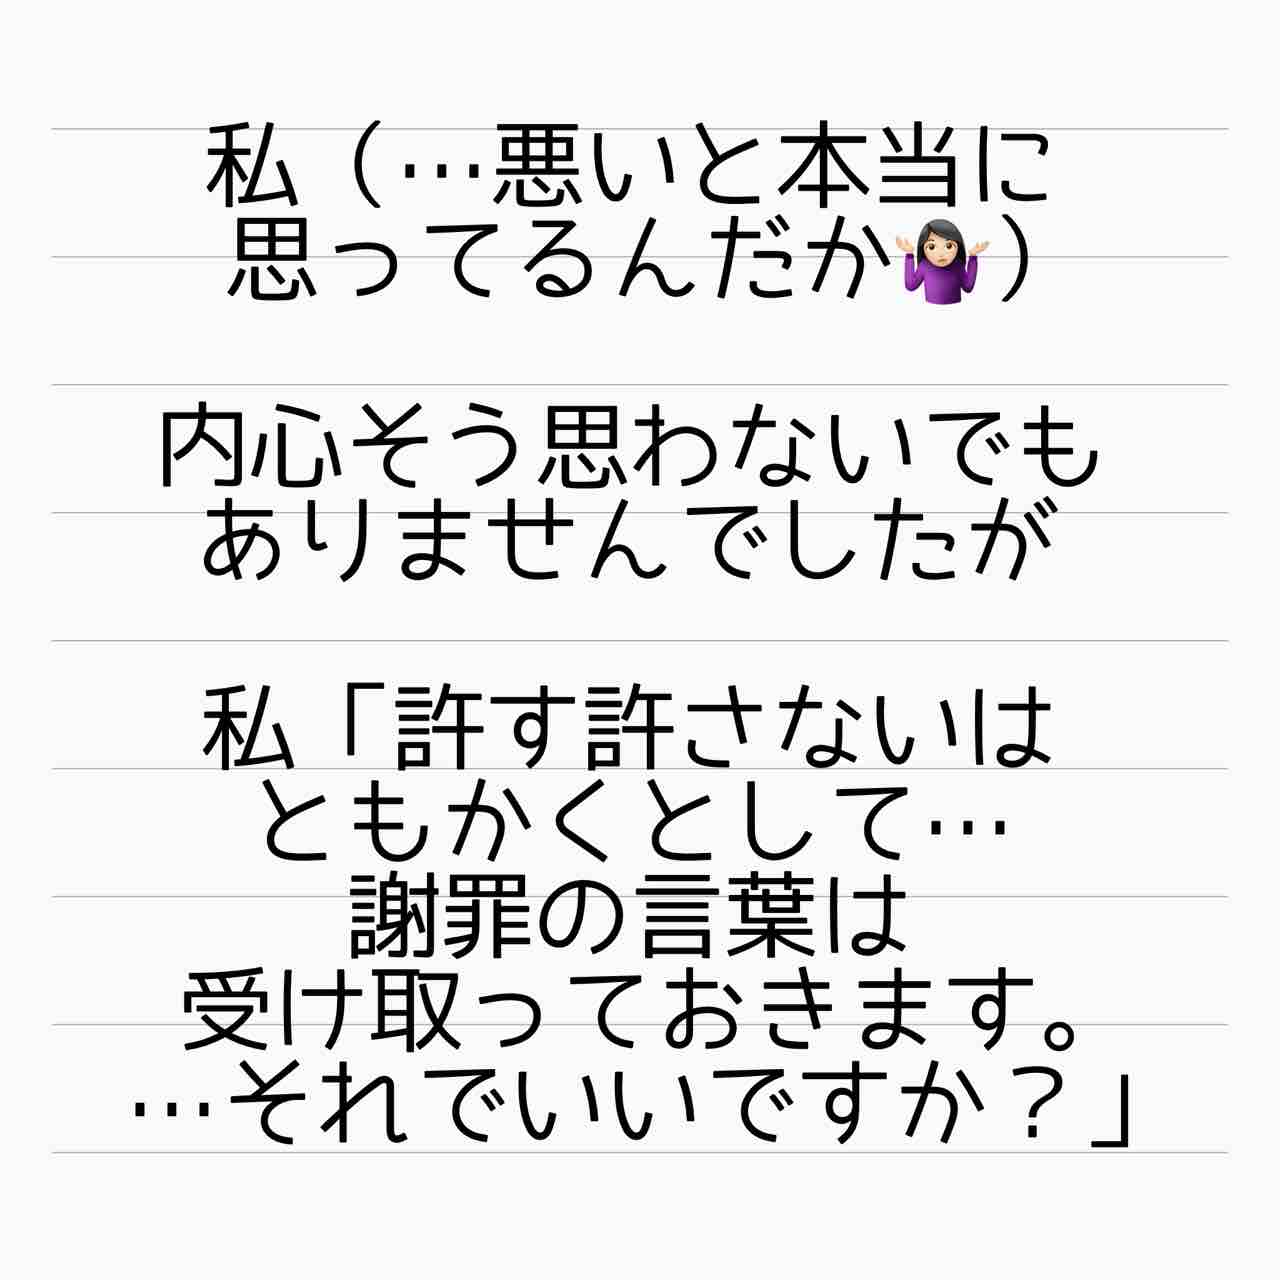 私（…悪いと本当に
思ってるんだか🤷🏻‍♀️）
内心そう思わないでも
ありませんでしたが
私「許す許さないは
ともかくとして…
謝罪の言葉は
受け取っておきます。
…それでいいですか？」